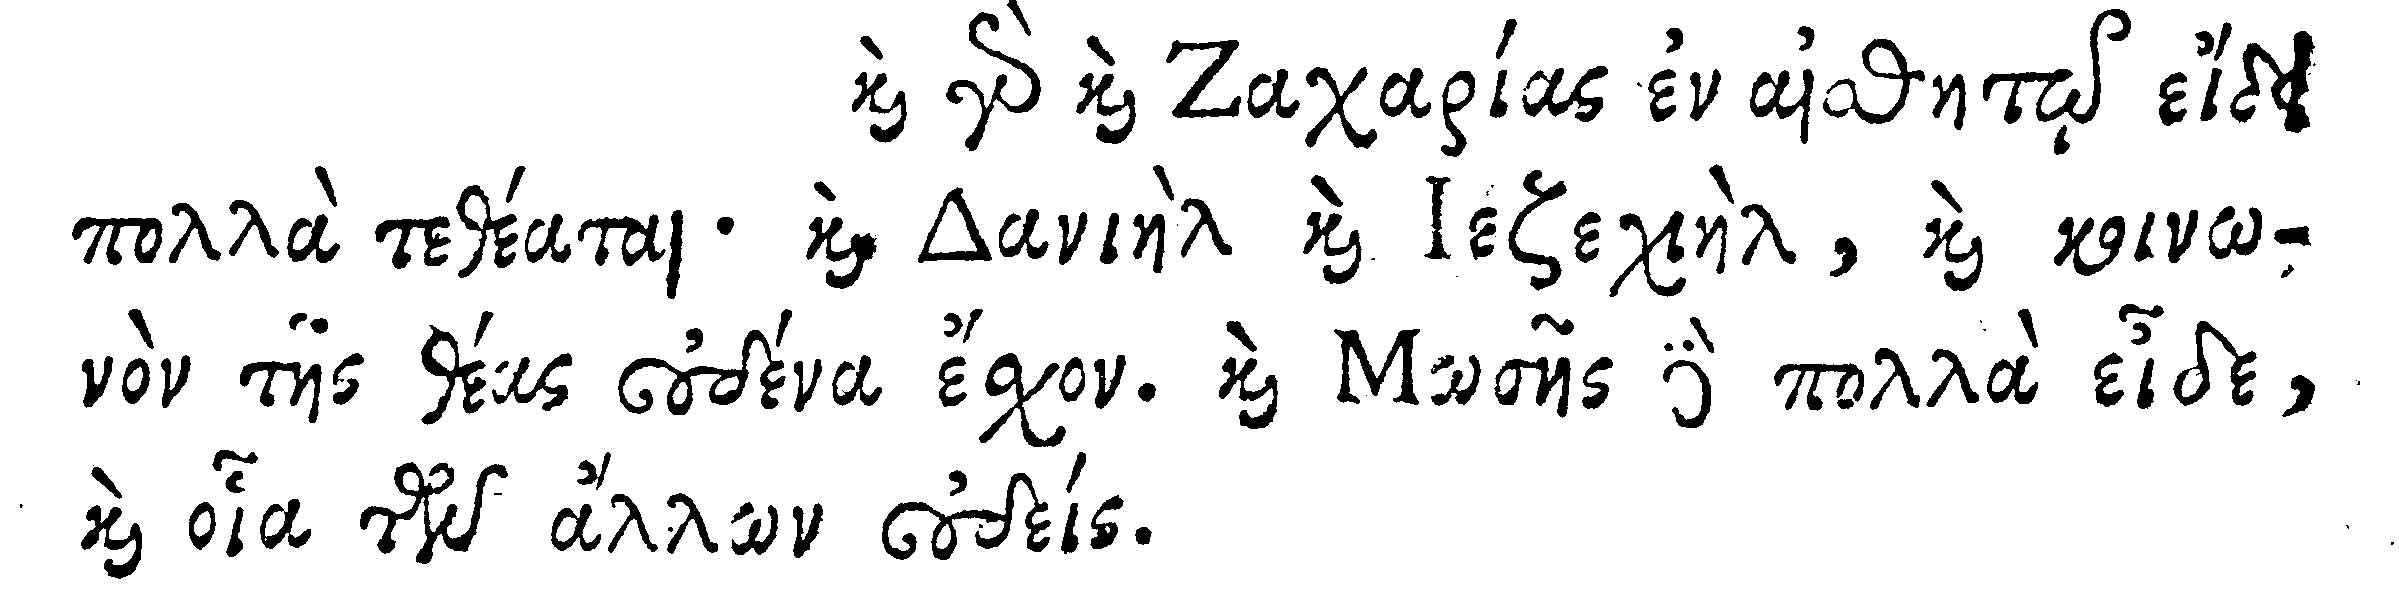 καὶ γὰρ καὶ Ζαχαρίας ἐν αἰσθητῷ εἴδει
πολλὰ τεθέαται· καὶ Δανιὴλ καὶ Ιεζεχιὴλ, καὶ κοινω-
νὸν τῆς θέας οὐδένα ἔχον. καὶ Μωσῆς ϳ̈ὰ πολλὰ εἶδε,
καὶ οἷα τῶν ἄλλων οὐδείς.